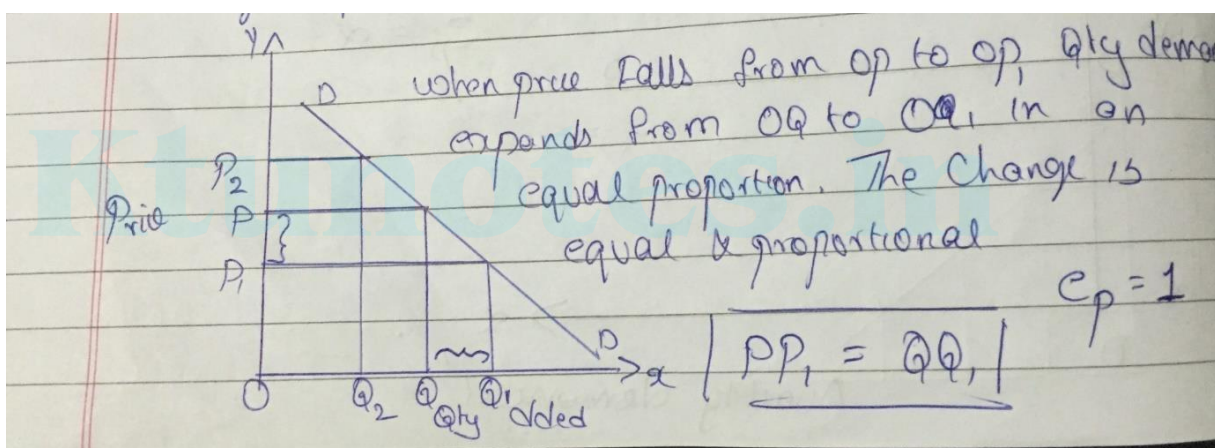 Y
D when price Falls from OP to OP₁ Qty deman
expands from OQ to OQ₁ in an
P₂ equal proportion. The Change is
Price P equal & proportional
P₁ eₚ = 1
PP₁ = QQ₁
D
O Q₂ Q Q₁ x
Qty dded
Ktunotes.in